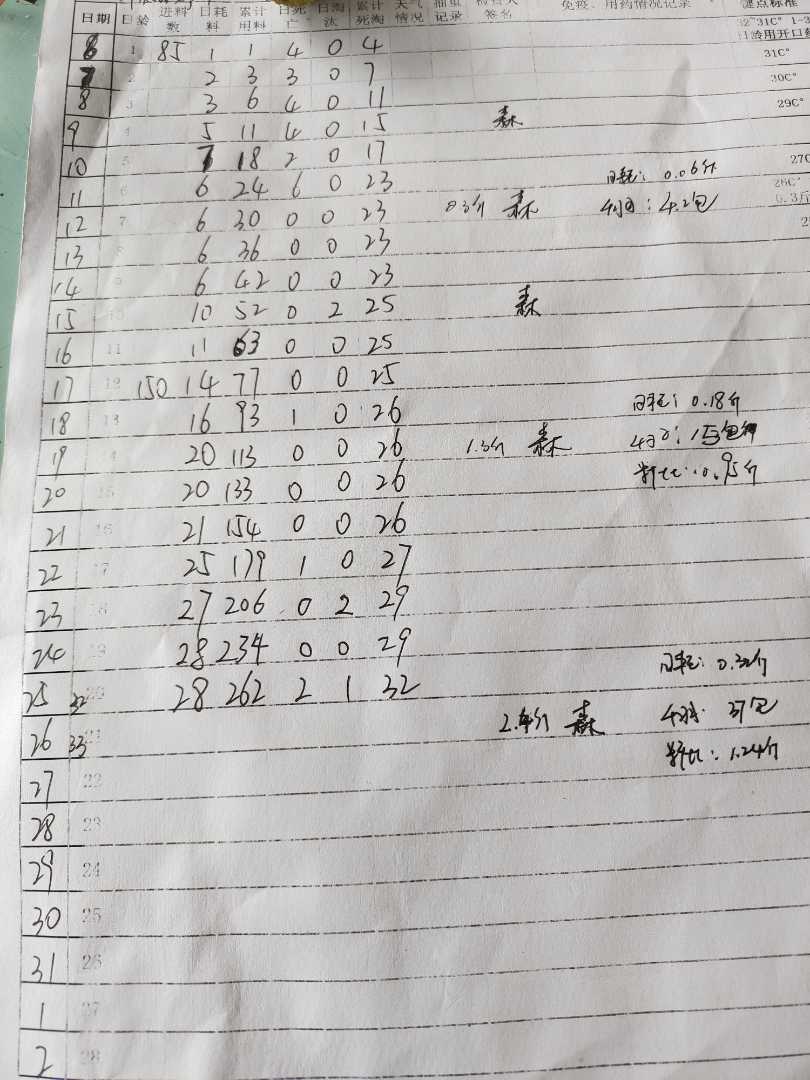 日期 日龄 进料数 日耗料 累计用料 日死亡 日淘汰 累计死淘 天气情况 抽重记录 签名 免疫、用药情况记录 键点标准
32~31C° 1-3
日龄用开口
6 1 85 1 1 4 0 4 31C°
7 2 2 3 3 0 7 30C°
8 3 3 6 4 0 11 29C°
9 4 5 11 4 0 15 森
10 5 7 18 2 0 17 27C
11 6 6 24 6 0 23 日耗: 0.06斤 26C°
12 7 6 30 0 0 23 0.3斤 森 4.2包 0.3斤
13 8 6 36 0 0 23
14 9 6 42 0 0 23
15 10 10 52 0 2 25 森
16 11 11 63 0 0 25
17 12 150 14 77 0 0 25
18 13 16 93 1 0 26 日耗: 0.18斤
19 14 20 113 0 0 26 1.3斤 森 15包
20 15 20 133 0 0 26 料比: 0.95斤
21 16 21 154 0 0 26
22 17 25 179 1 0 27
23 18 27 206 0 2 29
24 19 28 234 0 0 29
25 32 20 28 262 2 1 32 日耗: 0.32斤
26 33 21 2.4斤 森 37包
27 22 料比: 1.24斤
28 23
29 24
30 25
31 26
1 27
2 28